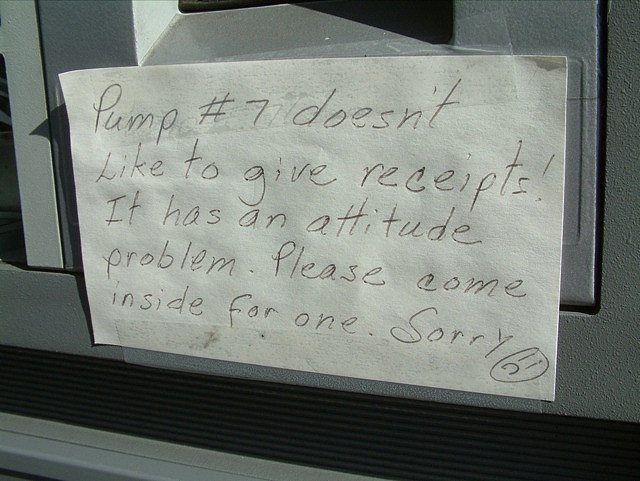 Pump # 7 doesn't
Like to give receipts!
It has an attitude
problem. Please come
inside for one. Sorry